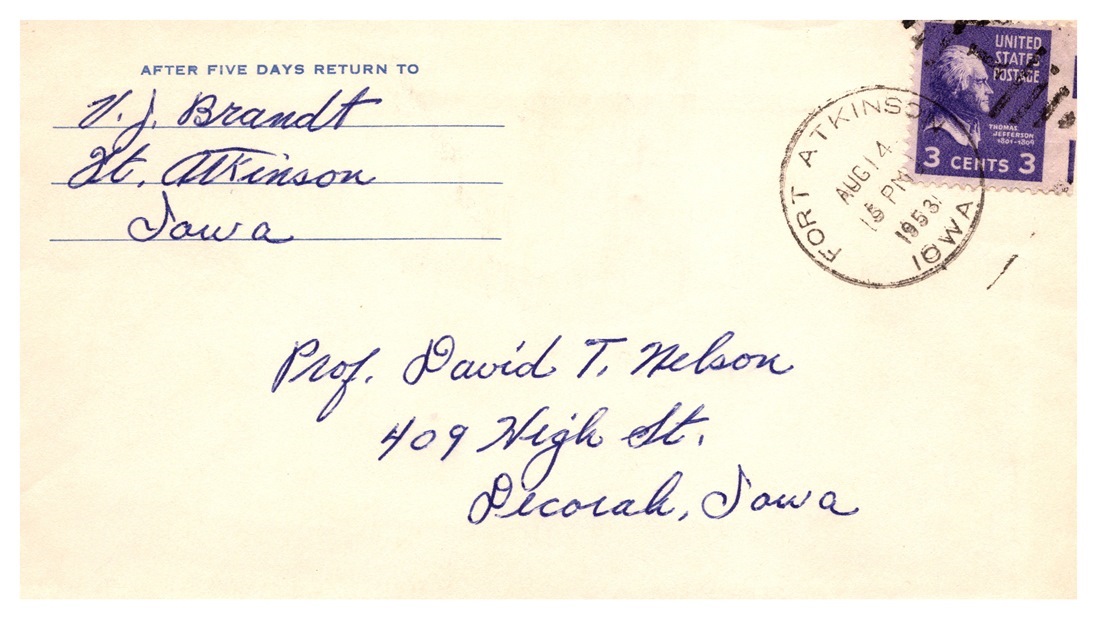 AFTER FIVE DAYS RETURN TO
V. J. Brandt
Ft. Atkinson
Iowa
UNITED
STATES
POSTAGE
THOMAS
JEFFERSON
1801-1809
3 CENTS 3
FORT ATKINSON
AUG 14
PM
1953
IOWA
Prof. David T. Nelson
409 High St.
Decorah, Iowa